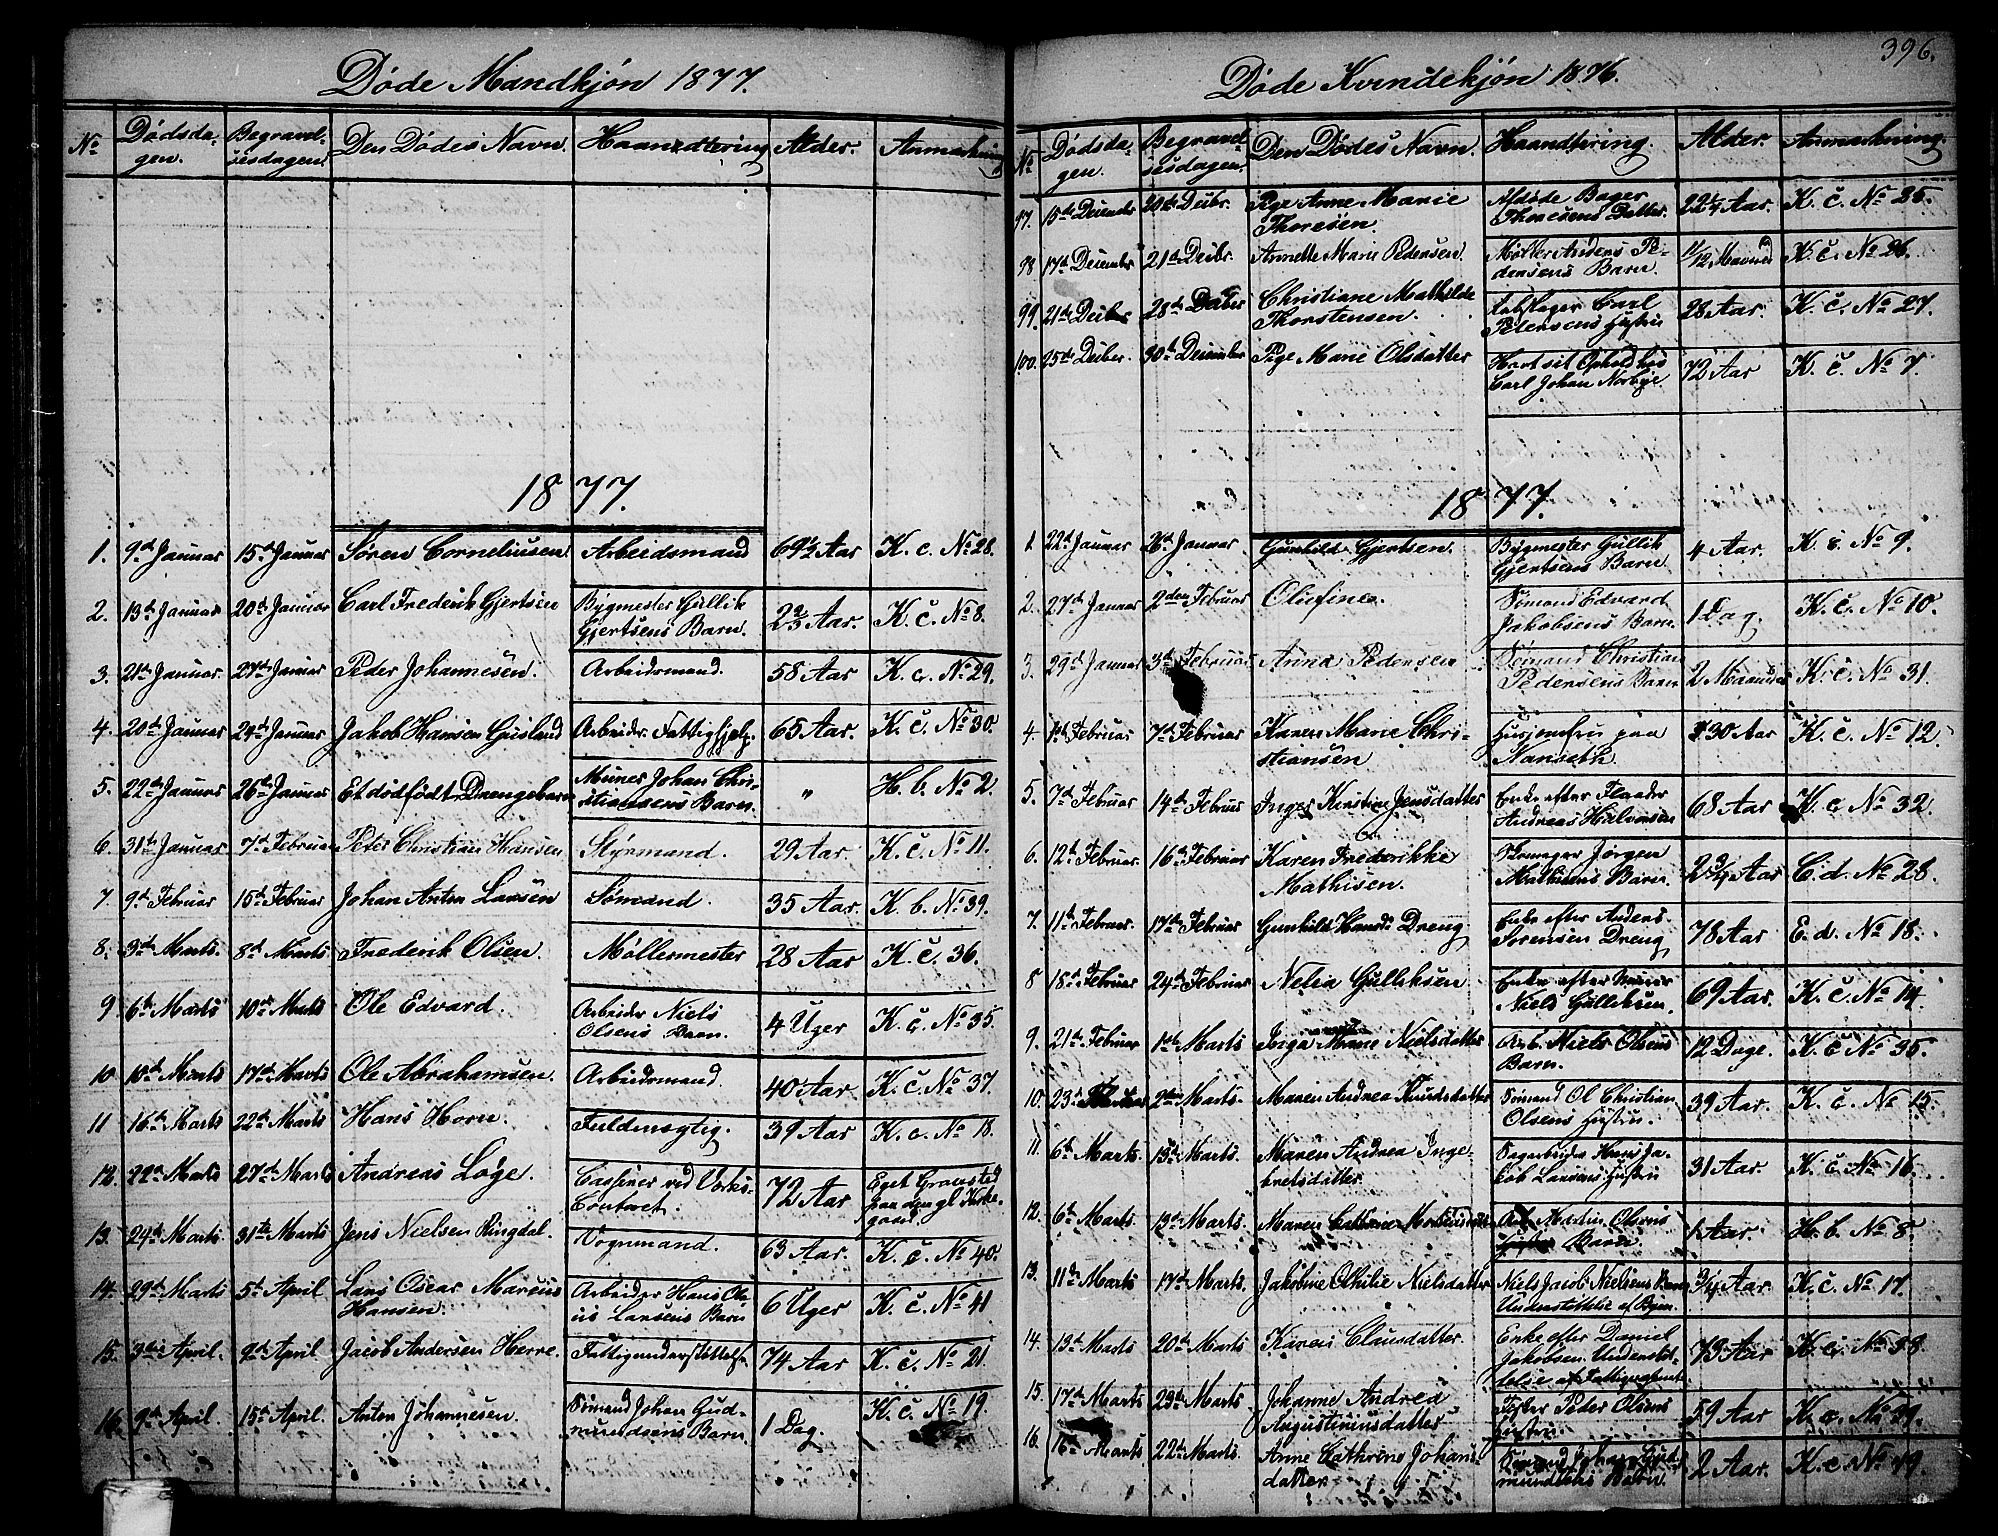 396.
Døde Mandkjøn 1877.
No
Dødsda-
gen.
Begravel-
sesdagen.
Den Dødes Navn.
Haandtering
Alder.
Anmærkning
1877.
1. 9de Januar 15de Januar Søren Corneliusen Arbeidsmand 69 1/2 Aar K. c. No 28.
2. 13de Januar 20de Januar Carl Frederik Gjertsen Bygmester Gullik
Gjertsens Barn. 2 2/3 Aar. K. c. No 8.
3. 21de Januar. 27de Januar Peder Johannesen. Arbeidsmand. 58 Aar K. c. No 29.
4. 20de Januar 24de Januar Jakob Hansen Arbeider. Fattighjelp. 65 Aar. K. c. No 30.
5. 22de Januar 26de Januar Et dødfødt Drengebarn Murer Johan Chri-
stiansens Barn. " H. b. No 2.
6. 31te Januar 7de Februar Peter Christian Hansen Styrmand. 29 Aar. K. c. No 11.
7. 9de Februar 15de Februar Johan Anton Larsen Sømand. 35 Aar. K. b. No 39.
8. 3die Marts. 8de Marts Frederik Olsen. Møllermester 28 Aar K. c. 36.
9 6te Marts 10de Marts Ole Edvard. Arbeider Niels
Olsens Barn. 4 Uger K. c. No 35.
10 10de Marts 17de Marts Ole Abrahamsen. Arbeidsmand. 40 Aar. K. c. No 37.
11 16de Marts 22de Marts Hans Horn. Fuldmægtig. 39 Aar K. c. No 18.
12. 22de Marts 27de Marts Andreas Loge. Casserer ved Værks-
Contoret. 72 Aar Eget Gravsted
paa den gl. Kirke-
gaard.
13. 24de Marts 31te Marts Jens Nielsen Ringdal. Vognmand. 63 Aar. K. c. No 40.
14. 29de Marts 5te April Lars Oscar Marcus
Hansen. Arbeider Hans Ola-
us Larsens Barn 6 Uger K. c. No 41
15. 3die April. 9de April. Jacob Andersen Herre. Fattigunderstøttelse 74 Aar K. c. No 21.
16. 9de April. 15de April. Anton Johannesen. Sømand Johan Gud-
mundsens Barn. 1 Dag. K. c. No 19.
Døde Kvindekjøn 1876.
No
Dødsda-
gen.
Begravel-
sesdagen.
Den Dødes Navn.
Haandtering.
Alder.
Anmærkning.
97. 15de December 20de Decbr. Pige Anne Marie
Thoresen. Afdøde Bager
Thoresens Datter. 22 1/4 Aar. K. c. No 25.
98 17de December 21de Decbr. Annette Marie Pedersen Møller Anders Pe-
dersens Barn. 11/12 Maaned K. c. No 26.
99. 21de Decber 28de Decber Christiane Mathilde
Thorstensen. Carl
Pedersens Hustru 28 Aar. K. c. No 27.
100. 25de Decber. 30de December Pige Marie Olsdatter Havt sit Ophold hos
Carl Johan Norbye. 72 Aar K. c. No 7.
1877.
1. 22de Januar 26de Januar Gunhild Gjertsen. Bygmester Gullik
Gjertsens Barn 4 Aar. K. c. No 9.
2. 27de Januar 2den Februar Olufine. Sømand Edvard
Jakobsens Barn. 1 Dag. K. c. No 10.
3. 29de Januar 3de Februar Anna Pedersen Sømand Christian
Pedersens Barn 2 Maaneder K. c. No 31.
4. 1ste Februar 7de Februar Karen Marie Chri-
stiansen. Husjomfru paa
Nanseth. 30 Aar K. c. No 12.
5. 7de Februar 14de Februar Inger Kirstine Jensdatter Enke efter
Andreas Halvorsen 68 Aar K. c. No 32.
6. 12te Februar. 16de Februar Karen Frederikke
Mathisen. Jørgen
Mathisens Barn. 2 3/4 Aar C. d. No 28.
7. 11te Februar. 17de Februar Gunhild Hansd. Dreng. Enke efter Anders
Sørensen Dreng 78 Aar E. d. No 18.
8 18de Februar 24de Februar Nelia Gulliksen Enke efter Murer
Niels Gulliksen. 69 Aar. K. c. No 14.
9. 21de Februar 1ste Marts Inga Marie Nielsdatter Arb. Niels Olsens
Barn. 12 Dage. K. c No 35.
10. 23de Februar 2den Marts. Maren Andrea Knudsdatter Sømand Ol Christian
Olsens Hustru. 39 Aar. K. c. No 15.
11. 6te Marts. 13de Marts. Maren Andrea Inge-
bretsdatter. Hans Ja-
kob Larsens Hustru 31 Aar. K. c. No 16.
12. 6te Marts. 13de Marts. Maren Cathrine Arb. Martin Olsens
Barn. 1 Aar. H. b. No 8.
13. 11te Marts 17de Marts. Jakobine Othilie Nielsdatter Niels Jacob Nielsens Barn
Understøttelse af Byen. 3/4 Aar. K. c. No 17.
14. 13de Marts 20de Marts Karen Clausdatter. Enke efter Daniel
Jakobsen. Understøt-
telse af 73 Aar K. c. No 38.
15. 17de Marts 23de Marts. Johanne Andrea
Augustiniusdatter Peder Olsens
Hustru. 59 Aar K. c. No 39.
16. 16de Marts 22de Marts. Anne Cathrine Johans-
datter Sømand Johan Gud-
mundsens Barn. 2 Aar. K. c. No 19.